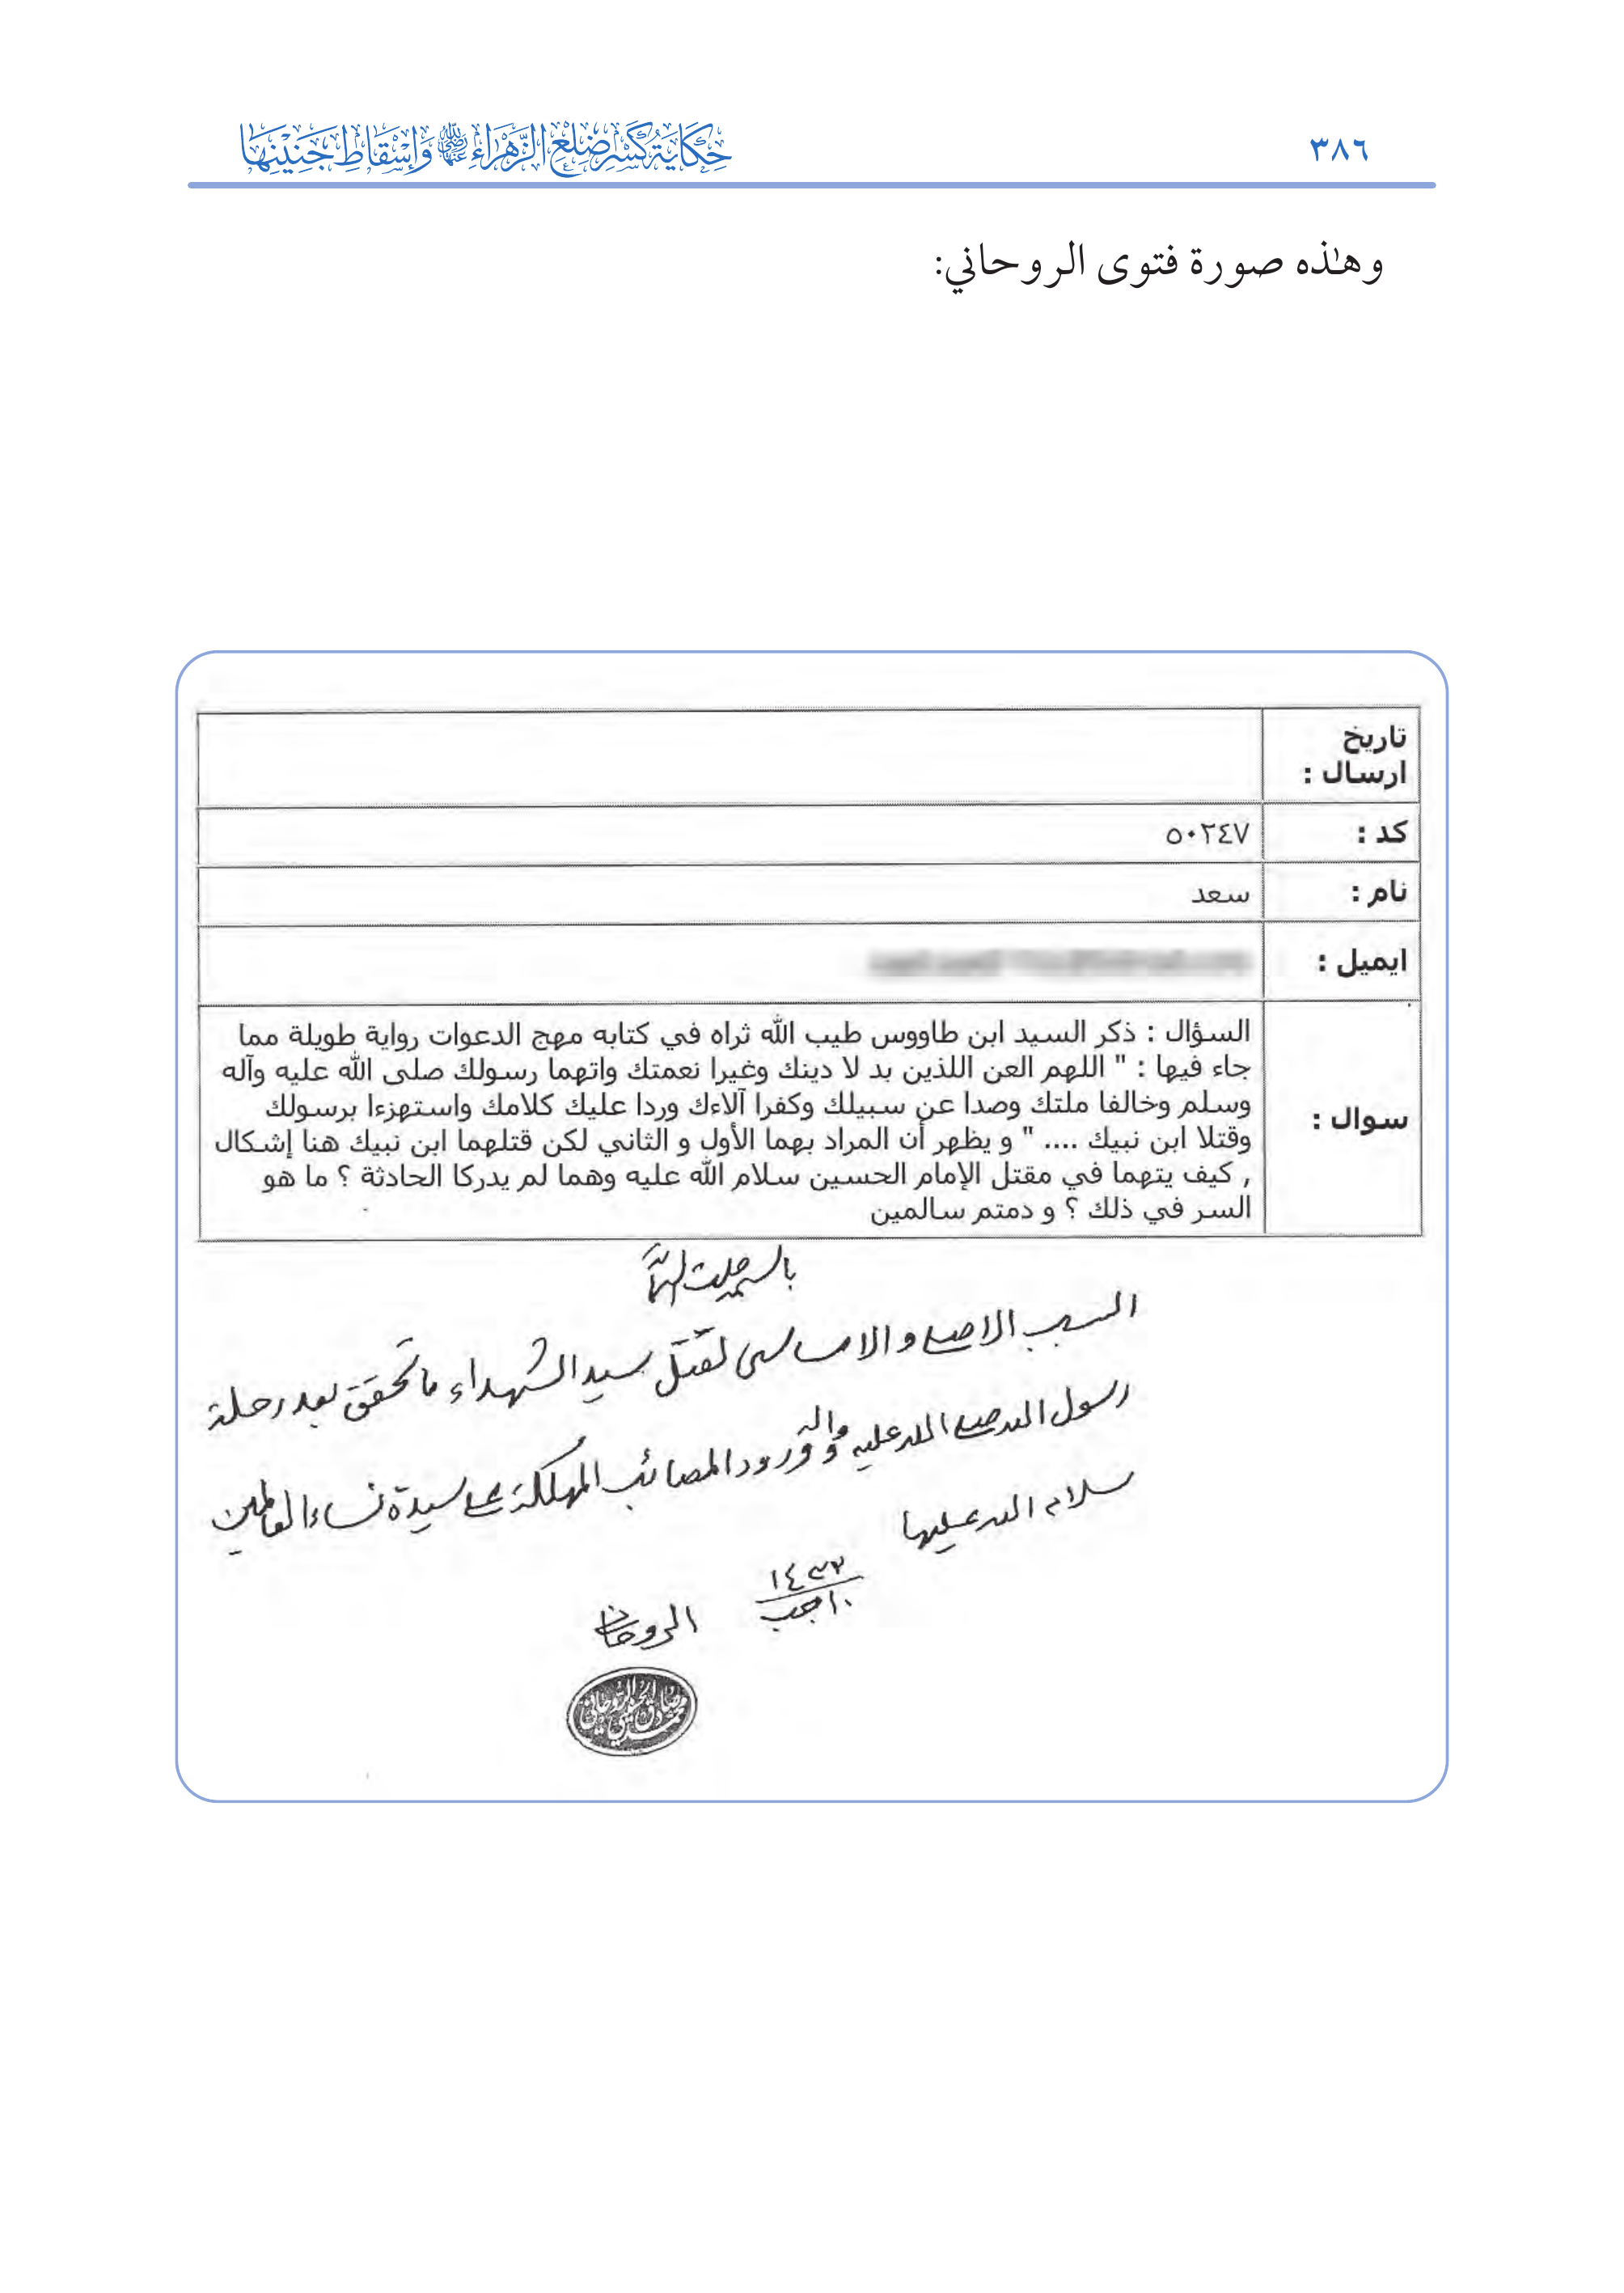 ٣٨٦
حِكَايَةُ كَسْرِ ضِلْعِ الزَّهْرَاءِ رضي الله عنها وَإِسْقَاطِ جَنِيْنِهَا
وهٰذه صورة فتوى الروحاني:
تاريخ
ارسال :
كد : ٥٠٢٤٧
نام : سعد
ايميل :
سوال :
السؤال : ذكر السيد ابن طاووس طيب الله ثراه في كتابه مهج الدعوات رواية طويلة مما
جاء فيها : " اللهم العن اللذين بد لا دينك وغيرا نعمتك واتهما رسولك صلى الله عليه وآله
وسلم وخالفا ملتك وصدا عن سبيلك وكفرا آلاءك وردا عليك كلامك واستهزءا برسولك
وقتلا ابن نبيك .... " و يظهر أن المراد بهما الأول و الثاني لكن قتلهما ابن نبيك هنا إشكال
, كيف يتهما في مقتل الإمام الحسين سلام الله عليه وهما لم يدركا الحادثة ؟ ما هو
السر في ذلك ؟ و دمتم سالمين
السبب الاصلى والاساسى لقتل سيد الشهداء ما تحقق بعد رحلة
رسول الله صلى الله عليه وآله وورود المصائب المهلكة على سيدة نساء العالمين
سلام الله عليها
الروحانى
محمد صادق الحسيني الروحاني